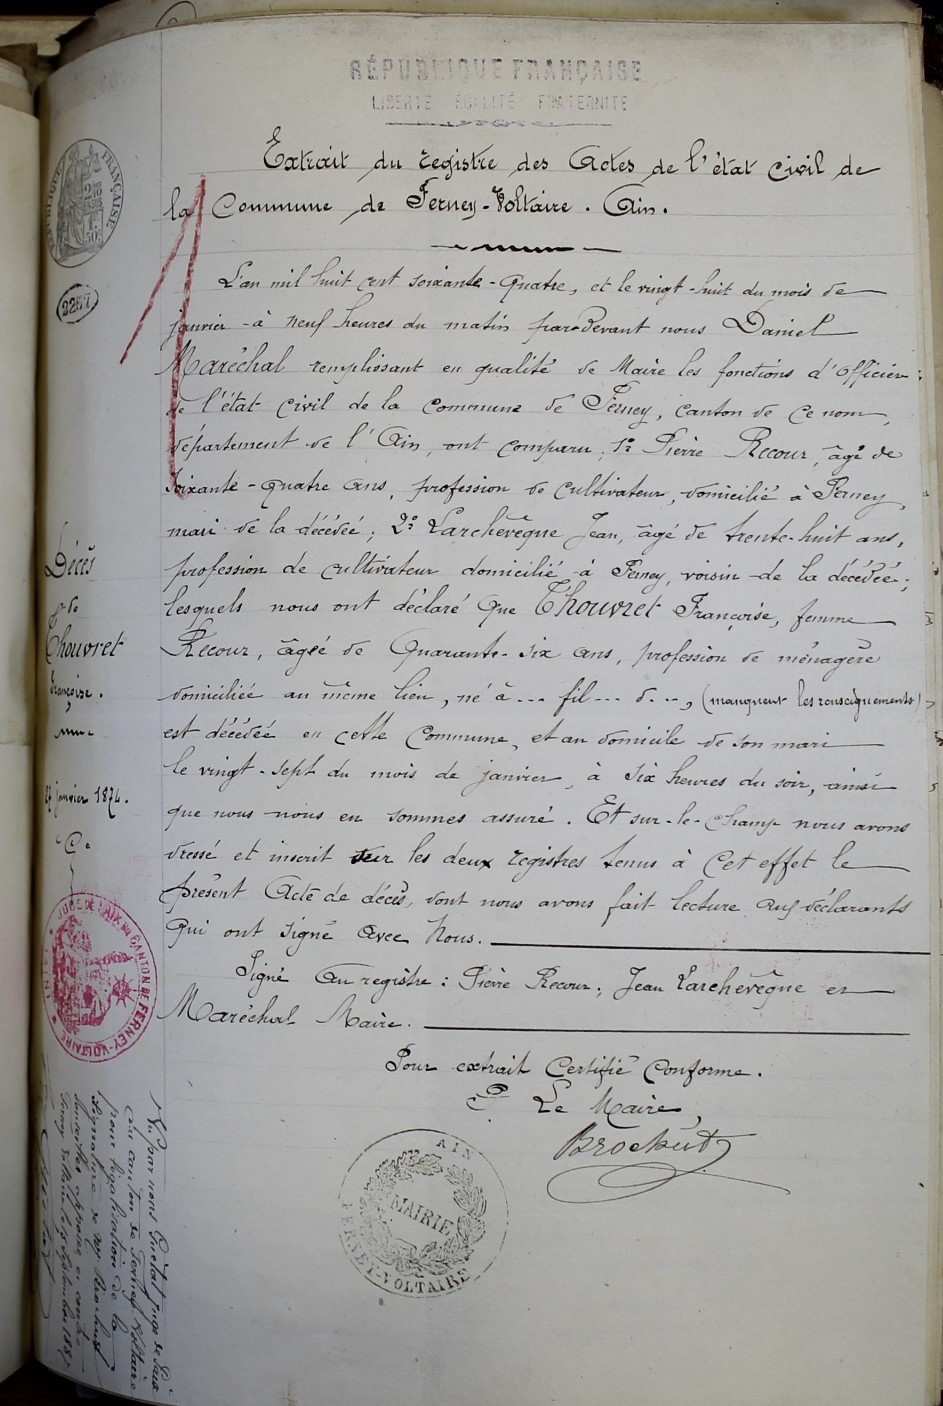 RÉPUBLIQUE FRANÇAISE
LIBERTÉ ÉGALITÉ FRATERNITÉ
Extrait du registre des Actes de l'état civil de
la Commune de Ferney-Voltaire. Ain.
RÉPUBLIQUE FRANÇAISE
2257
L'an mil huit cent soixante-quatre, et le vingt-huit du mois de
janvier à neuf heures du matin par-devant nous Daniel
Maréchal remplissant en qualité de Maire les fonctions d'officier
de l'état civil de la commune de Ferney, canton de ce nom,
département de l'Ain, ont comparu, 1º Pierre Recour, âgé de
soixante-quatre ans, profession de cultivateur, domicilié à Ferney,
mari de la décédée; 2º Larchevêque Jean, âgé de trente-huit ans,
profession de cultivateur domicilié à Ferney, voisin de la décédée;
lesquels nous ont déclaré que Thouvret Françoise, femme
Recour, âgée de Quarante-six ans, profession de ménagère
domiciliée au même lieu, né à ... fil ... d ..., (manquent les renseignements)
est décédée en cette commune, et au domicile de son mari
le vingt-sept du mois de janvier, à six heures du soir, ainsi
que nous nous en sommes assuré. Et sur-le-champ nous avons
dressé et inscrit sur les deux registres tenus à cet effet le
présent Acte de décès, dont nous avons fait lecture aux déclarants
qui ont signé avec Nous.
Signé au registre: Pierre Recour, Jean Larchevêque et
Maréchal Maire.
Pour extrait certifié conforme.
P. Le Maire,
Brochut
Décès
de
Thouvret
Françoise.
27 janvier 1874.
JUGE DE PAIX DU CANTON DE FERNEY-VOLTAIRE
AIN
MAIRIE
FERNEY-VOLTAIRE
Vu par nous juge de Paix
du canton de Ferney Voltaire
pour légalisation de la
signature de Mr Brochut
apposée